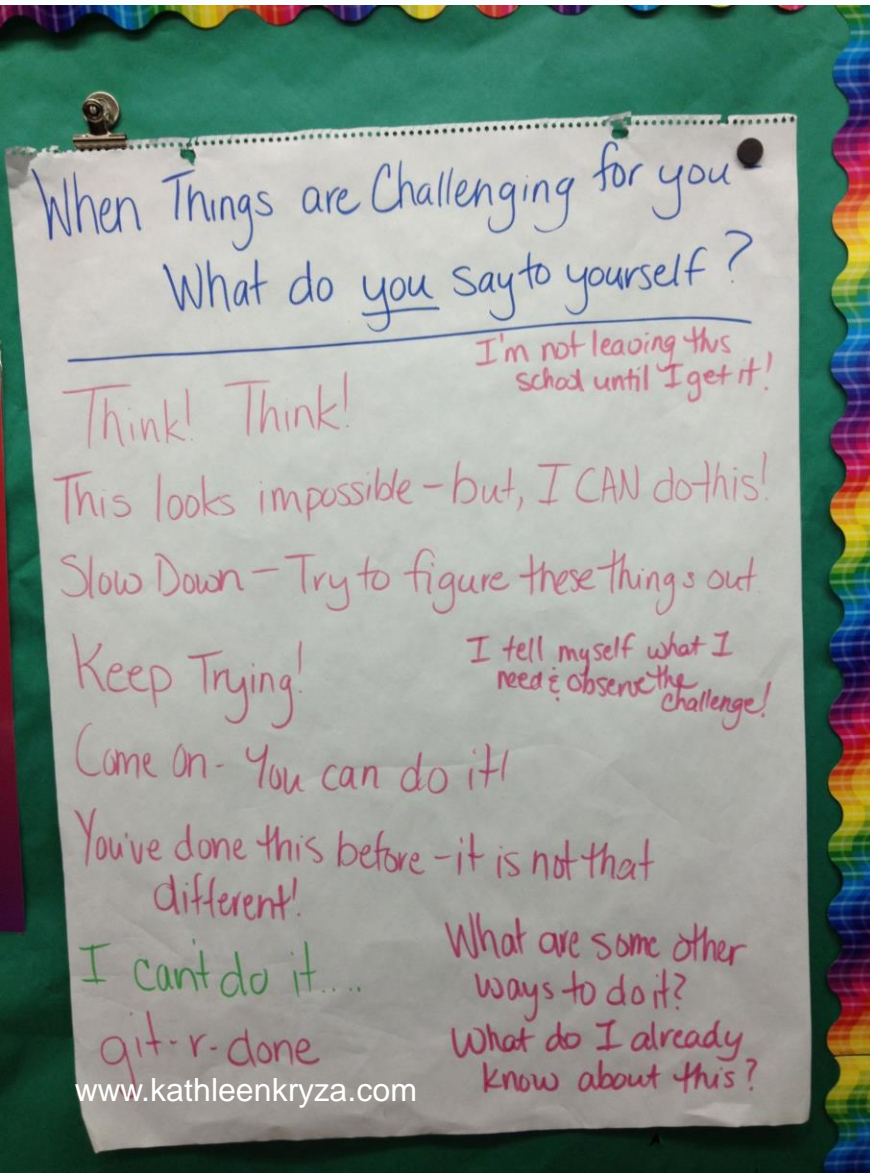 When Things are Challenging for you -
What do you say to yourself?
I'm not leaving this
school until I get it!
Think! Think!
This looks impossible - but, I CAN do this!
Slow Down - Try to figure these things out
Keep Trying!
I tell myself what I
need & observe the
challenge!
Come on - You can do it!
You've done this before - it is not that
different!
I can't do it....
What are some other
ways to do it?
git-r-done
What do I already
know about this?
www.kathleenkryza.com